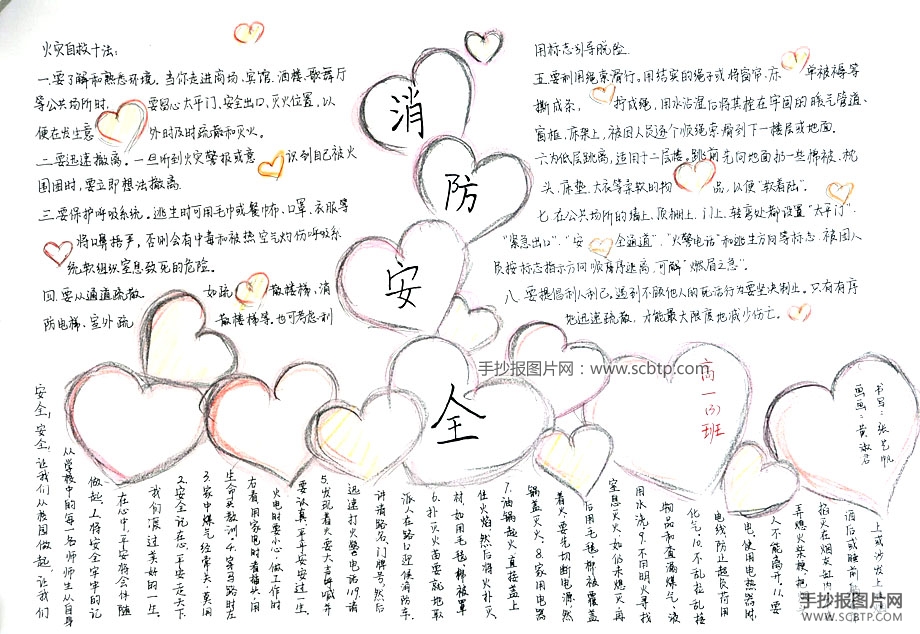 火灾自救十法：
一.要了解和熟悉环境。当你走进商场、宾馆、酒楼、歌舞厅
等公共场所时，要留心太平门、安全出口、灭火位置，以
便在发生意外时及时疏散和灭火。
二.要迅速撤离。一旦听到火灾警报或意识到自己被火
围困时，要立即想法撤离
三.要保护呼吸系统。逃生时可用毛巾或餐巾布、口罩、衣服等
将口鼻捂严，否则会有中毒和被热空气灼伤呼吸系
统软组织窒息致死的危险。
四.要从通道疏散。如疏散楼梯、消
防电梯、室外疏散楼梯等。也可考虑利
消
防
安
全
用标志引导脱险
五.要利用绳索滑行。用结实的绳子或将窗帘、床单被褥等
撕成条，拧成绳，用水沾湿后将其拴在牢固的暖气管道、
窗框、床架上，被困人员逐个顺绳索滑到下一楼层或地面。
六.为低层跳离，适用于二层楼。跳前先向地面扔一些棉被、枕
头、床垫、大衣等柔软的物品，以便“软着陆”。
七.在公共场所的墙上、顶棚上、门上、转弯处都设置“太平门”、
“紧急出口”、“安全通道”、“火警电话”和逃生方向等标志，被困人
员按标志指示方向顺序逃离，可解“燃眉之急”。
八.要提倡利人利己。遇到不顾他人的死活行为要坚决制止。只有有序
地迅速疏散，才能最大限度地减少伤亡。
手抄报图片网：www.scbtp.com
高一(3)班
书写：张艺帆
画画：黄淑君
上或沙发上
酒后或睡前
掐灭在烟灰缸内
弄燃火柴梗，把
人不能离开。11.要
电，使用电热器时，
电线，防止超负荷用
化气。10.不乱拉乱接
物品和查漏煤气、液
用水浇。9.不用明火寻找
窒息灭火，如仍未熄灭再
后用毛毯、棉被覆盖
着火，要先切断电源，然
锅盖灭火。8.家用电器
7.油锅起火直接盖上
住火焰，然后将火扑灭
材，如用毛毯、棉被罩
6.扑灭火苗要就地取
派人在路口迎候消防车。
讲清路名、门牌号，然后
迅速打火警电话119，请
5.发现着火要大声呼喊并
要认真，平平安安过一生。
火电时要小心，做工作时
右看，用家电时看插头，用
生命头教训，4.穿马路时左
3.家中煤气经常关，莫用
2.安全记在心，平安走天下
我们度过美好的一生。
在心中，平安将会伴随
做起，1.将安全牢牢的记
从学校中的每一名师生从自身
安全，安全，让我们从校园做起，让我们
手抄报图片网
WWW.SCBTP.COM